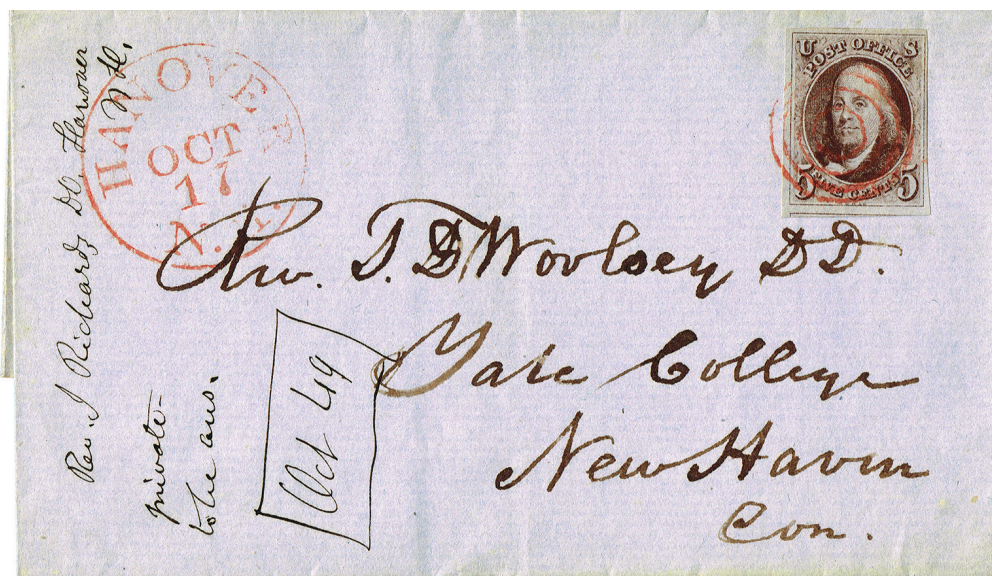 Rev. J Richards DD. Hanover
N H.
HANOVER
OCT
17
N.H.
U S
POST OFFICE
5 FIVE CENTS 5
Rev. T. D Woolsey DD.
Yale College
New Haven
Con.
private-
to be ans.
Oct 49